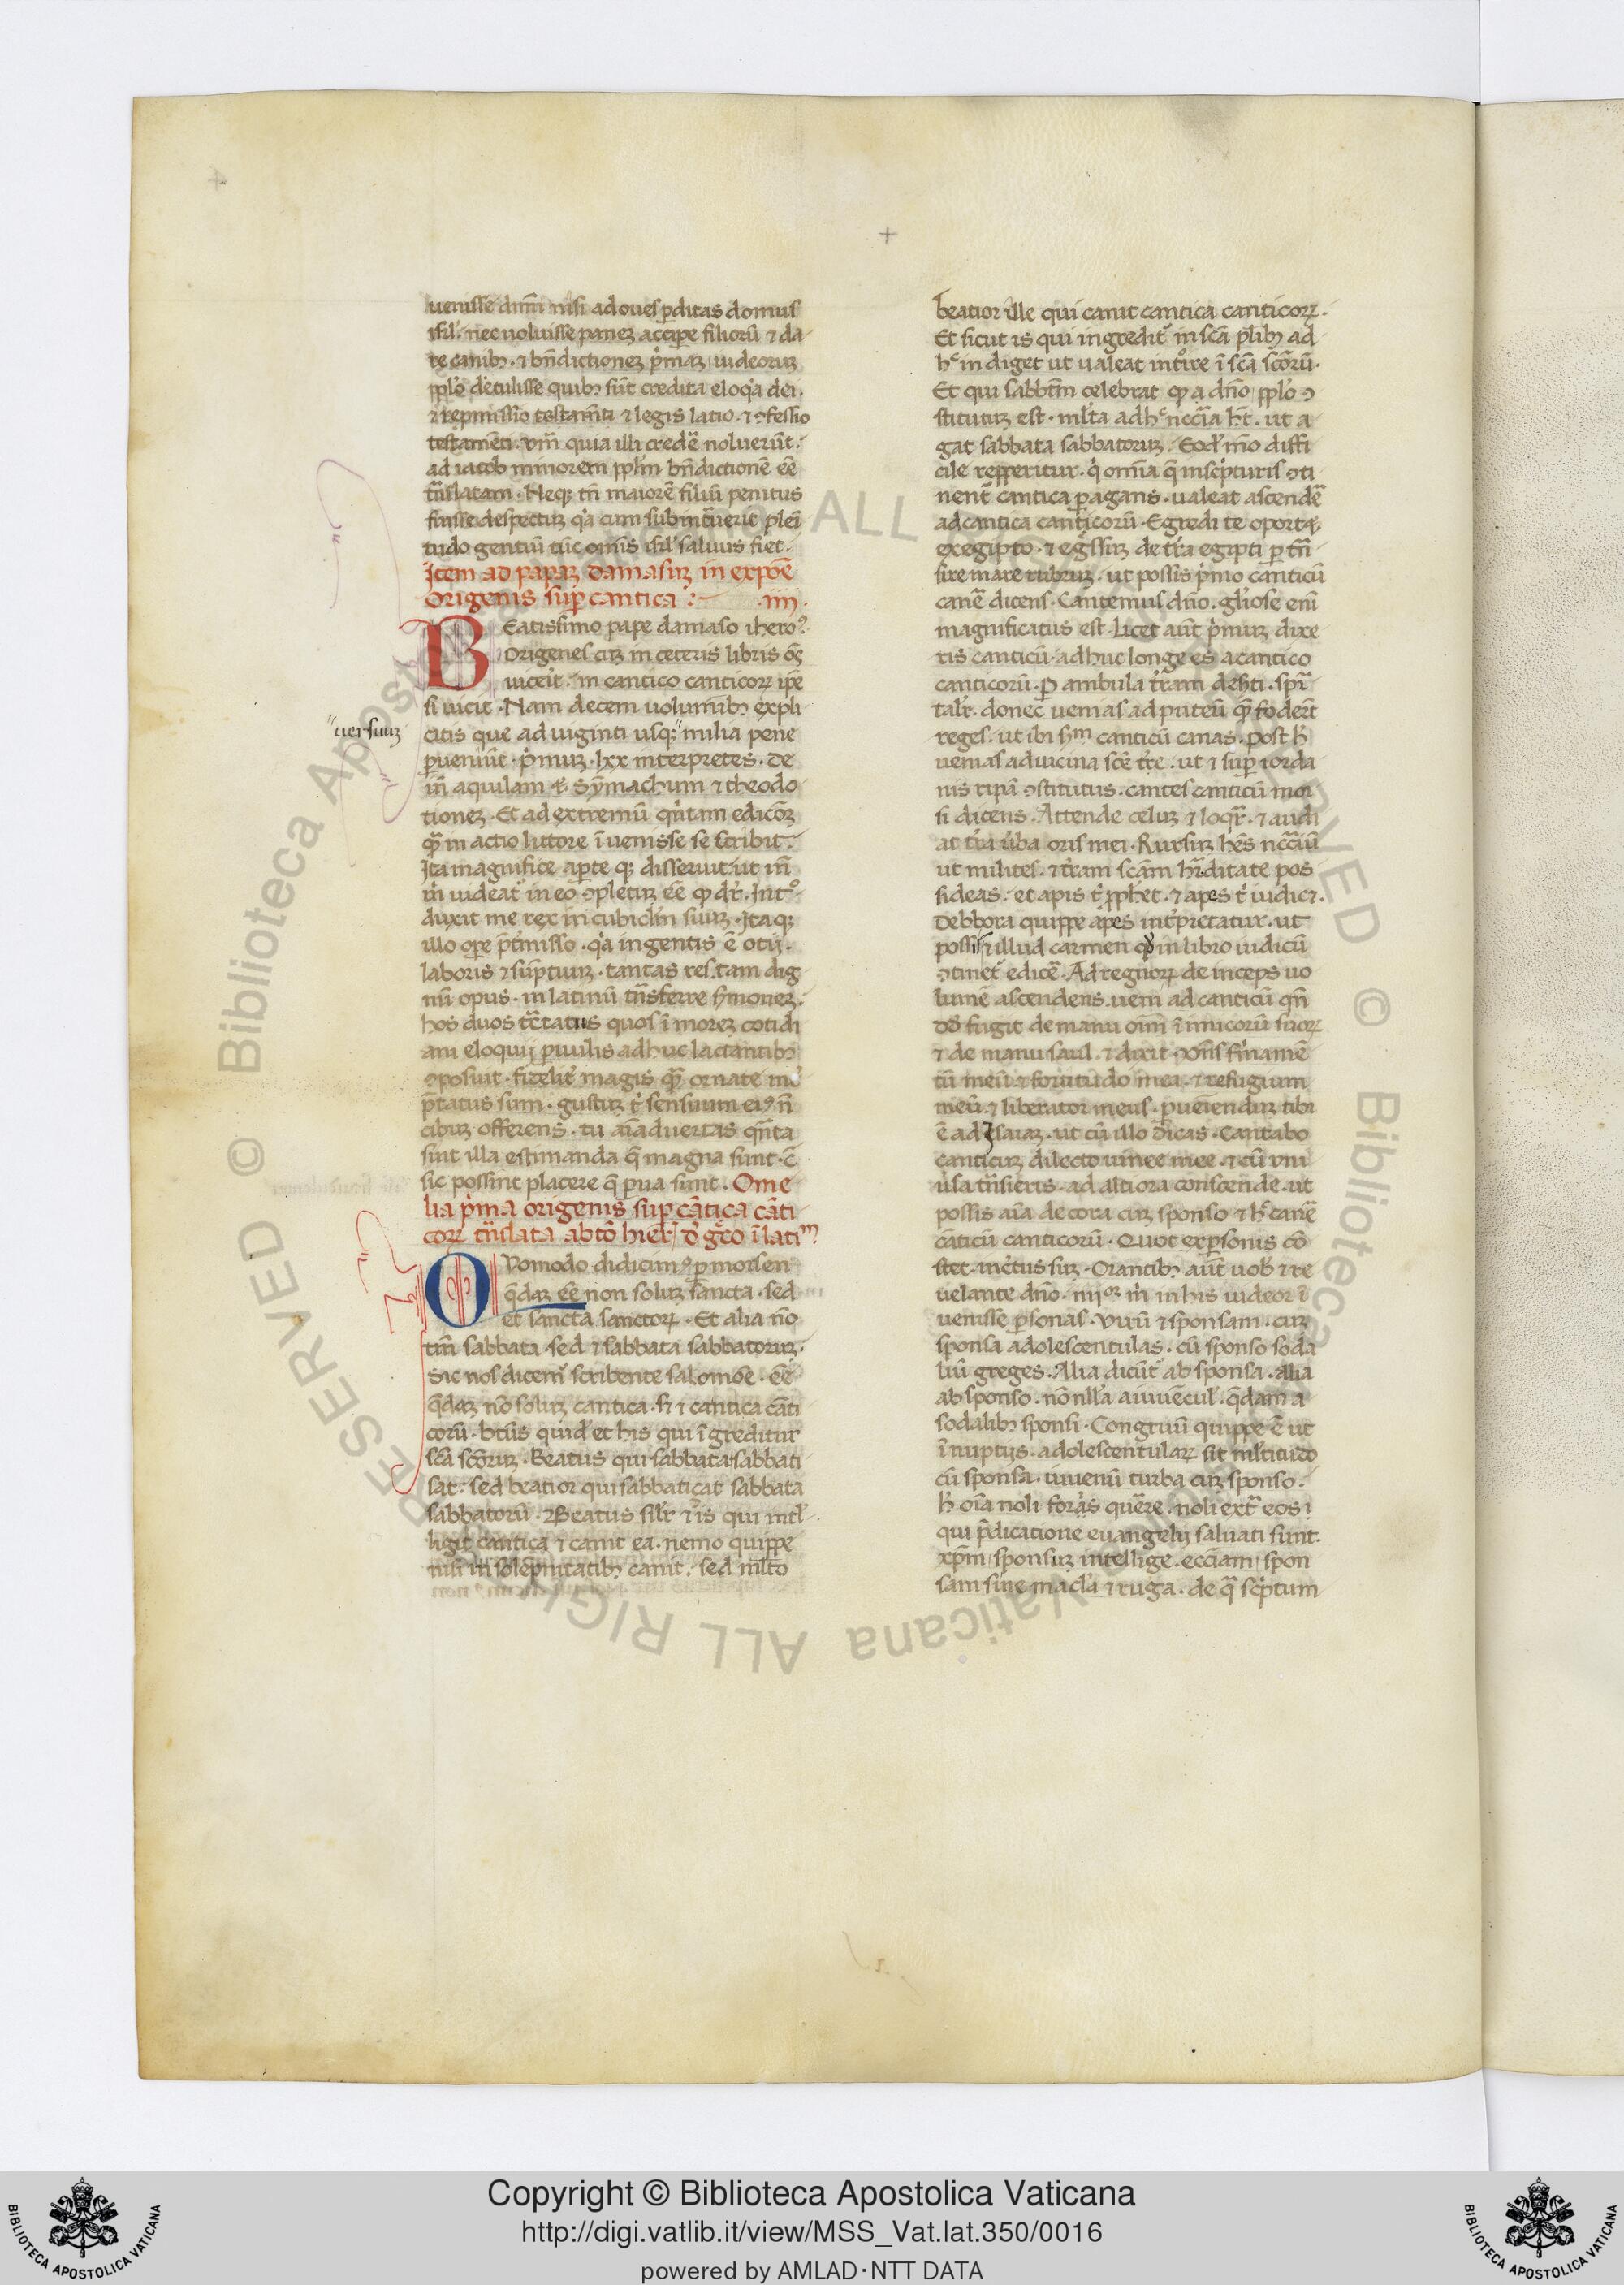 uenisse dnm̄ nisi ad oues ꝑditas domus
isrl̓. nec uoluisse paneʒ accipe filioꝝ ⁊ da
re canibꝫ. ⁊ bn̄dictioneʒ p̓maʒ iudeorum
pplo̓ detulisse quibꝫ sūt credita eloq̓a dei.
⁊ repmissio testam̄ti ⁊ legis latio. ⁊ ɔfessio
testamēti. Vm̄ quia illi crede᷑ noluerūt.
ad iacob minorem pplm̄ bn̄dictionē eē
tn̄slatam. Neqꝫ tn̄ maiorē filiū penitus
fuisse despectuʒ q̓a cum subint̓uerit pleī
tudo gentiū tūc om̄is isrl̓ saluus fiet.
Item ad papaʒ damasuʒ in expoe᷑
origenis suꝑ cantica :~ .iiii.
Beatissimo pape damaso ihero᷒.
Origenes cuʒ in ceteris libris oēs
uiceīt. in cantico canticoꝝ ipe
si uicit. Nam decem uoluminibꝫ expli
uersuuʒ
citis que ad uiginti usqꝫ " milia pene
ꝑueniūt. p̓muʒ. lxx interpretes. de
in̄ aquilam ⁊ symachum ⁊ theodo
tioneʒ. Et ad extremū qn̓tam edicōʒ
quā in actio littore īuenisse se scribit.
Ita magnifice aꝑte qꝫ disseruit. ut in̄
m̓ uideat᷑ in eo ɔpletuʒ eē ꝙ dr̄. Int͛o
duxit me rex in cubiclm̄ suuʒ. Itaqꝫ
illo oꝑe p̄t̓misso. q̓a ingentis ē otii.
laboris ⁊ sūptuuʒ. tantas res. tam dig
nū opus. in latinū tn̄sferre s̓moneʒ.
hos duos tr̄ctatus quos ī moreʒ cotidi
ani eloquij ꝑuulis adhuc lactantibꝫ
ɔposuit. fidelit̓ magis quā ornate int̓
p̄tatus sum. gustuʒ t̓ sensuum eiꝰ n̄
cibuʒ offerens. tu aīaduertas qn̄ta
sint illa estimanda q̄ magna sunt. c̄
sic possint placere q̄ ꝑua sunt. Ome
lia p̓ma origenis suꝑ cātica cāti
coꝝ tn̄slata ab tō hier̄ | d̓ gr̄co ī latiᵐ?
Quomodo didicimꝰ ꝑ moisen
q̄daʒ eē non soluʒ sancta. sed
et sancta sanctoꝝ. Et alia nō
tm̄ sabbata. sed ⁊ sabbata sabbatoruʒ.
Sic nos dicem̓ scribente salomoē. eē
q̄daʒ nō soluʒ cantica. s̓ ⁊ cantica cāti
corū. btūs quid̓ et his qui īgreditur
scā scōruʒ. Beatus qui sabbata sabbati
sat. sed beatior qui sabbatiçat sabbata
sabbatorū. ⁊ Beatus silr̄ ⁊ is qui intl̓
ligit cantica ⁊ canit ea. nemo quippe
nisi in solepnitatibꝫ canit. sed ml̓to
beatior ille qui canit cantica canticoꝝ.
Et sicut is qui ingredit᷑ in scā pl̓ibꝫ ad
hᶜ indiget ut ualeat int͛oire ī scā scōrū.
Et qui sabbtm̄ celebrat ꝙ a dn̄o pplo̓ ɔ
stitutuʒ est. ml̓ta adhᶜ nccīa h̄t. ut a
gat sabbata sabbatoruʒ. Eod̓ mō diffi
cile repperitur. q̓ om̄ia q̄ inscp̓turis ɔti
nent᷑ cantica ꝑagans. ualeat ascende᷑
ad cantica canticorū. Egredi te oportꝫ
exegipto. ⁊ eg̓ssuʒ de tr̄ra egipti ꝑtn̄
sire mare rubruʒ. ut possis p̓mo canticū
cane᷑ dicens. Cantemus dn̄o. gl̓iose enī
magnificatus est. Licet aūt p̓muʒ dixe
ris canticū. adhuc longe es a cantico
canticorū. ꝑambula tr̄ram deh̓ti. spr̄i
talr̓. donec uenias ad puteū quē foder̄t
reges. ut ibi s̓ᵐ canticū canas. Post h̓
uenias ad uicina scē tr̄e. ut ⁊ suꝑ iorda
nis ripā ɔstitutus. cantes canticū moi
si dicens. Attende celuʒ ⁊ loqr̄. ⁊ audi
at tr̄ra ūba oris mei. Rursuʒ hēs nccīū
ut milites. ⁊ tr̄ram scām hr̄ditate pos
sideas. et apis t̓ ꝓphet. ⁊ apes t̓ iudicꝫ.
Debbora quippe apes int̓pretatur. ut
possis ⁊ illud carmen qᵈ in libro iudicū
ɔtinet᷑ edice᷑. Ad regnoꝝ deinceps uo
lumē ascendens. ueni ad canticū qn̄
dd̓ fugit de manu oīm īimicorū suoꝝ
⁊ de manu saul. ⁊ dixit. Dn̄s fr̓mamē
tū meū ⁊ fortitudo mea. ⁊ refugium
meū. ⁊ liberator meus. ꝑueīenduʒ tibi
ē ad Isaiaʒ. ut cū illo dicas. Cantabo
canticuʒ dilecto uinee mee. ⁊ cū vni
ūsa tn̄sieris. ad altiora conscende. ut
possis aīa decora cuʒ sponso ⁊ hᶜ cane᷑
cāticū canticorū. Quot exꝑsonis cō
stet. īc̓tus suʒ. Orantibꝫ aūt uob̓ ⁊ re
uelante dn̄o. iiijᵒʳ m̓ in his uideor ī
uenisse ꝑsonas. Virū ⁊ sponsam. cuʒ
sponsa adolescentulas. cū sponso soda
liū greges. Alia dicūt᷑ ab sponsa. alia
ab sponso. nō nlla̓ a iuuēcul̓. q̄dam a
sodalibꝫ sponsi. Congruū quippe ē ut
ī nuptiis. adolescentulaꝝ sit ml̓titudo
cū sponsa. iuuenū turba cuʒ sponso.
h̓ oīa noli foras quēre. noli ext̄ eos
qui p̄dicatione euangelij saluati sunt.
xpm̄ | sponsuʒ intellige. eccīam | spon
sam sine macl̓a ⁊ ruga. de quā scp̓tum
Copyright © Biblioteca Apostolica Vaticana
http://digi.vatlib.it/view/MSS_Vat.lat.350/0016
powered by AMLAD·NTT DATA
BIBLIOTECA APOSTOLICA VATICANA
BIBLIOTECA APOSTOLICA VATICANA